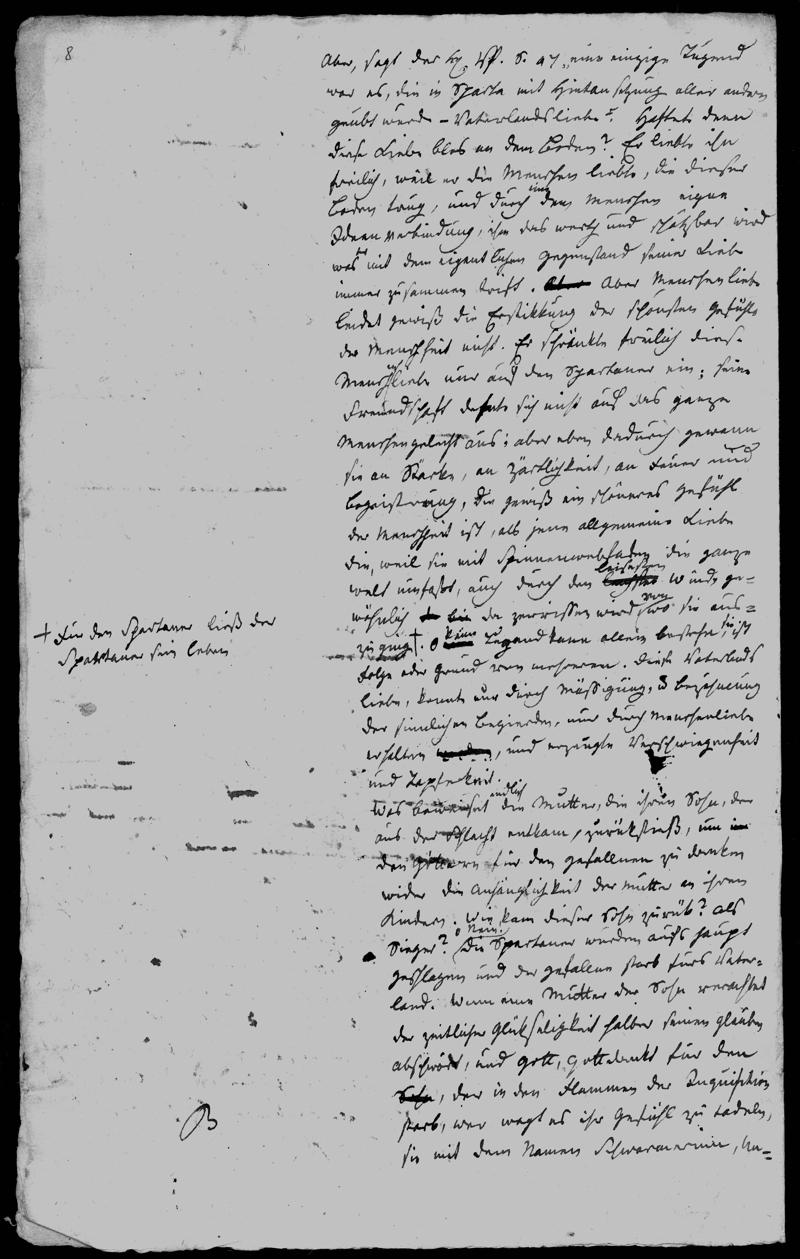 8
Aber, sagt der Hr. Vf. S. 47 „eine einzige Tugend
war es, die in Sparta mit Hintansetzung aller andern
geübt wurde – Vaterlandsliebe“. Haftete denn
diese Liebe blos an dem Boden? Er liebte ihn
freilich, weil er die Menschen liebte, die dieser
Boden trug, und durch eine dem Menschen eigne
Ideenverbindung, ihm das werth und schätzbar wird
was mit dem eigentlichen Gegenstand seiner Liebe
immer zusammen trift. Aber Menschenliebe
leidet gewiß die Erstikkung der schönsten Gefühle
der Menschheit nicht. Er schränkte freilich diese
Menschenliebe nur auf den Spartaner ein; seine
Freundschaft dehnte sich nicht auf das ganze
Menschengeschlecht aus; aber eben dadurch gewann
sie an Stärke, an Zärtlichkeit, an Feuer und
Begeisterung, die gewiß ein schöneres Gefühl
der Menschheit ist, als jene allgemeine Liebe
die, weil sie mit Spinnenwebfaden die ganze
Welt umfasst, auch durch den leisesten Winde ge-
wöhnlich da zerrissen wird, von wo sie aus-
zuging †. Keine Tugend kann allein bestehn, sie ist
Folge oder Grund von mehreren. Diese Vaterlands
liebe, konnte nur durch Mässigung, u Bezähmung
der sinnlichen Begierden, nur durch Menschenliebe
erhalten werden, und erzeugte Verschwiegenheit
und Tapferkeit.
† Für den Spartaner ließ der
Spartaner sein Leben
Was beweiset endlich die Mutter, die ihren Sohn, der
aus der Schlacht entkam, zurükstieß, um
den Göttern für den gefallnen zu danken
wider die Anhänglichkeit der Mutter an ihren
Kindern. Wie kam dieser Sohn zurük? Als
Sieger? O Nein! Die Spartaner wurden aufs Haupt
geschlagen und der gefallene starb fürs Vater-
land. Wenn eine Mutter den Sohn verachtet
der zeitlicher Glükseligkeit halber seinen Glauben
abschwört, und Gott, Gott dankt für den
Sohn, der in den Flammen der Inquisition
starb, wer wagt es ihr Gefühl zu tadeln,
sie mit dem Namen Schwärmerinn, Un-
B